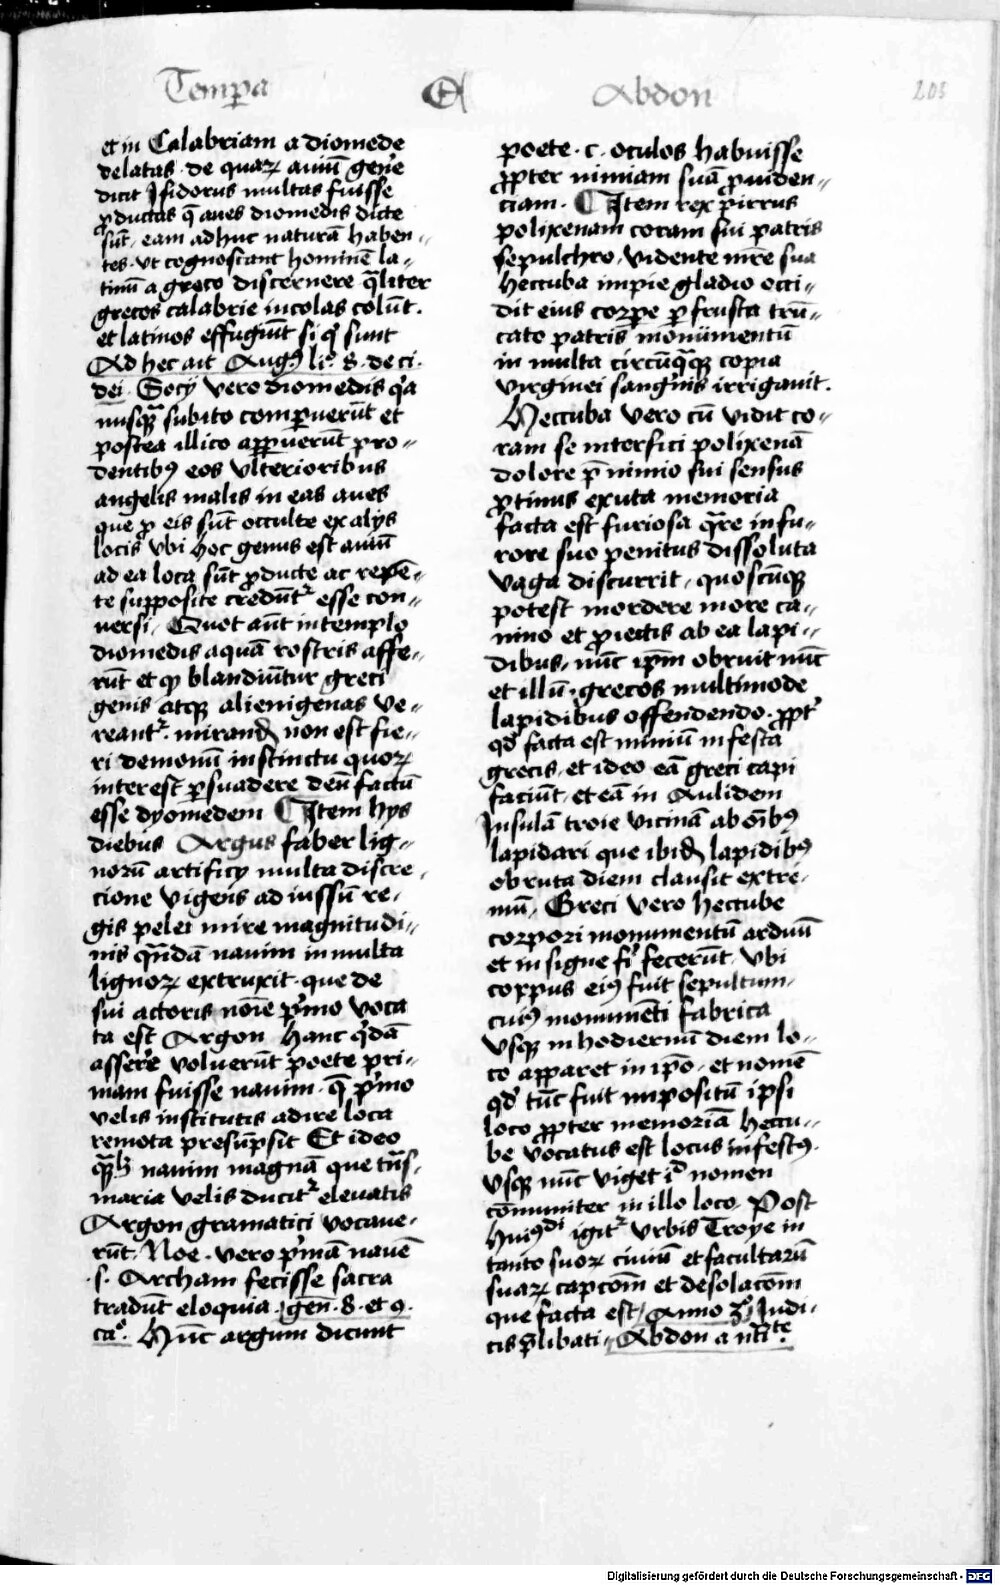 Tempa Et Abdon 203
et in Calabriam a diomede
delatas · de quaꝝ auiū gene
dicit Isidorus multas fuisse
ꝓductas q̄ aues diomedis dicte
sūt, eam adhuc naturā haben⸗
tes · vt cognoscant hominē la⸗
tinū a greco discernere q̄liter
grecos calabrie incolas colūt.
et latinos effugiūt si q' sunt
Ad hec ait Aug9 li° · 8 · de ci ·
dei · Socij vero diomedis q'a
nusqꝫ subito comparuerūt et
postea illico apparuerūt pro⸗
dentibꝰ eos vlterioribus
angelis malis in eas aues
que ꝓ eis sūt occulte ex alijs
locis vbi hoc genus est auiū
ad ea loca sūt ꝓducte ac repē⸗
te supposite credūtr esse con⸗
versi · Quot aūt in templo
diomedis aquā rostris affe⸗
rūt et ꝙ blandiūtur greci
genis atqꝫ alienigenas ve⸗
reantr · mirand non est fie⸗
ri demonū instinctu quoꝝ
interest ꝑsuadere deū factū
esse dyomedem ¶ Item hys
diebus Argus faber lig⸗
norū artificij multa discre⸗
cione vigens ad iussū re⸗
gis pelei mire magnitudi⸗
nis quādā nauim in multa
lignoꝝ extruxit · que de
sui actoris nōie p'mo voca
ta est Argon hanc q'dā
assere voluerūt poete pri⸗
mam fuisse nauim · q̄ p'mo
velis institutis adire loca
remota presūpsit Et ideo
nauim magnā que trās⸗
maria velis ducitr eleuatis
Argon gramatici vocaue⸗
rūt, Noe · vero p'mā nauē
· s · Archam fecisse sacra
tradūt eloquia · gen · 8 · et 9 ·
ca° · Nūc argum dicunt
poete · c · oculos habuisse
ꝓpter nimiam suā ꝓuiden⸗
ciam · ¶ Item rex pirrus
polixenam coram sui patris
sepulchro, vidente mr̄e sua
heccuba impie gladio occi⸗
dit eius corpe ꝑ frusta trū⸗
cato patris monumentū
in multa circūquaqꝫ copia
virginei sanguinis irrigauit.
Heccuba vero cū vidit co⸗
ram se interfici polixenā
dolore p̄ nimio sui sensus
ꝓtinus exuta memoria
facta est furiosa quare in fu⸗
rore suo penitus dissoluta
vaga discurrit, quoscūqꝫ
potest mordere more ca⸗
nino et ꝓiectis ab ea lapi⸗
dibus, nūc ip̄m obruit nūc
et illū · grecos multimode
lapidibus offendendo · ꝓpt'
qd' facta est nimiū infesta
grecis, et ideo eā greci capi
faciūt, et eā in Aulidem
Insulā troie vicinā ab oībꝰ
lapidari que ibid lapidibꝰ
obruta diem clausit extre⸗
mū, Greci vero heccube
corpori monumentū arduū
et insigne fi' fecerūt, vbi
corpus eiꝰ fuit sepultum,
cuiꝰ monumēti fabrica
vsqꝫ in hodiernū diem lo⸗
co apparet in ip̄o, et nomē
qd' tūc fuit impositū ipsi
loco ꝓpter memoriā heccu⸗
be vocatus est locus infestꝰ ·
vsqꝫ nūc viget id nomen
cōmuniter in illo loco, Post
huiꝰdi igitr vrbis Troye in
tanto suoꝝ ciuiū et facultatū
suaꝝ capcōm et desolacōm
que facta est, Anno 3° Iudi⸗
cis p̄libati, Abdon a
Digitalisierung gefördert durch die Deutsche Forschungsgemeinschaft - DFG